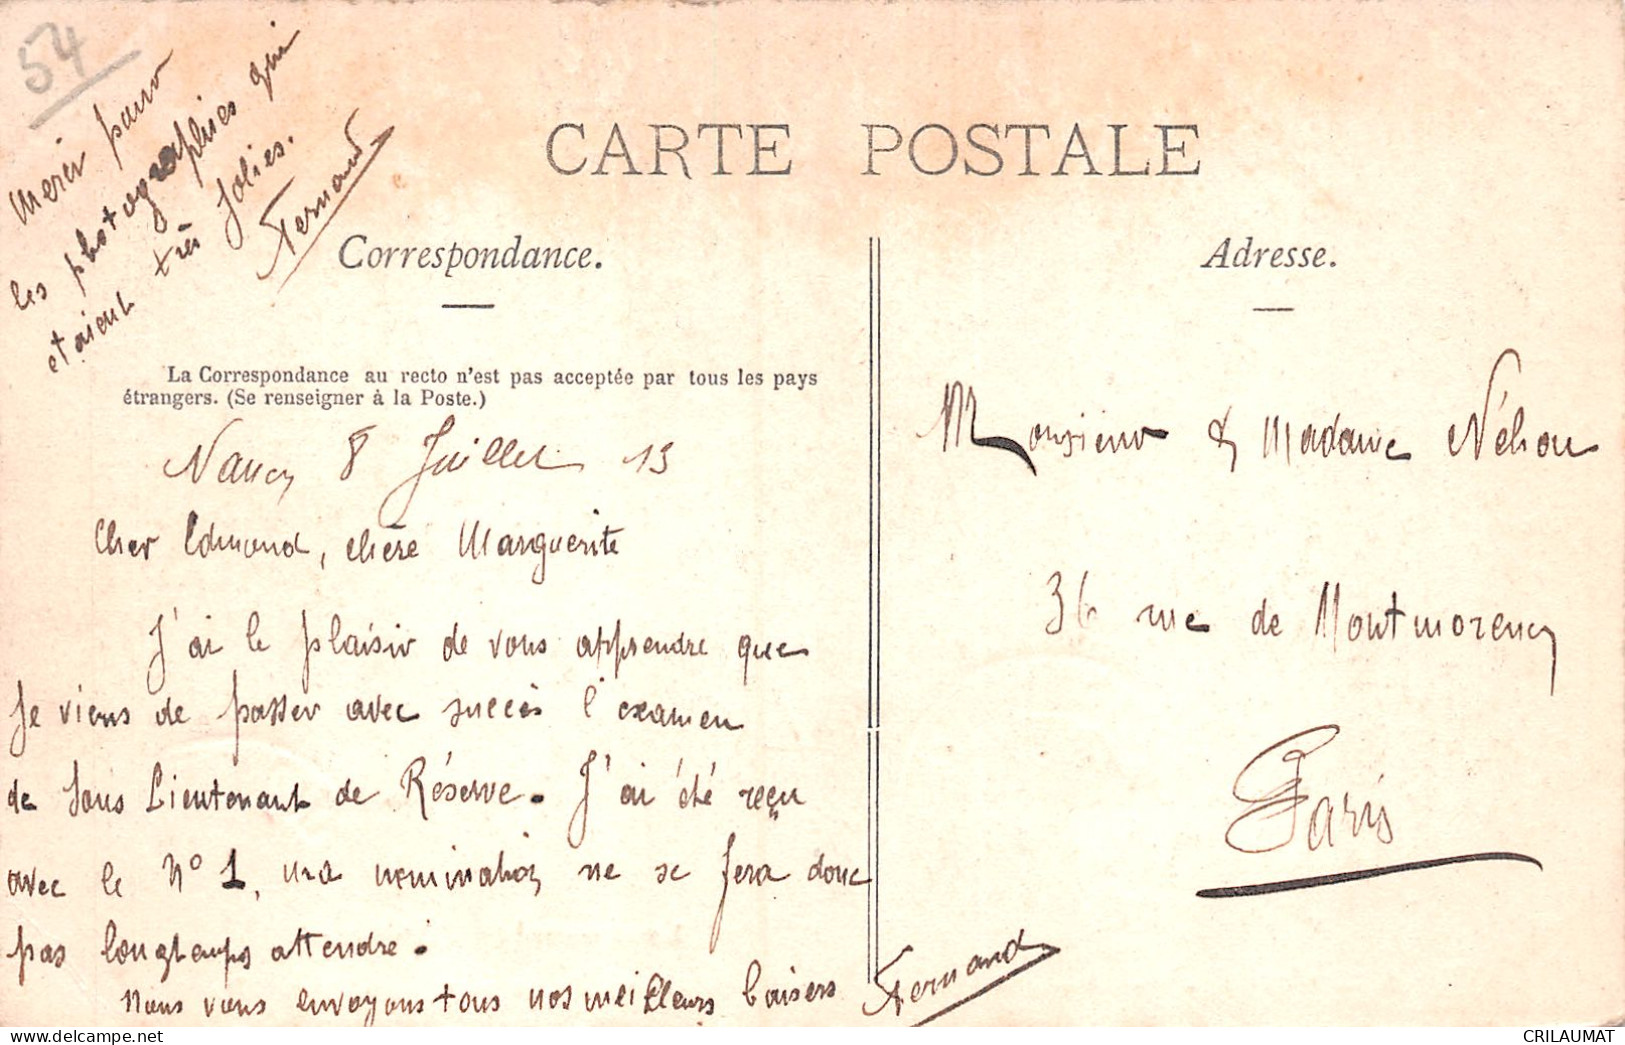 54
Merci pour
les photographies qui
etaient très jolies.
Fernand
CARTE POSTALE
Correspondance.
Adresse.
La Correspondance au recto n'est pas acceptée par tous les pays
étrangers. (Se renseigner à la Poste.)
Nancy 8 Juillet 13
Cher Edmond, chère Marguerite
J'ai le plaisir de vous apprendre que
je viens de passer avec succès l'examen
de Sous Lieutenant de Réserve. J'ai été reçu
avec le N° 1, ma nomination ne se fera donc
pas longtemps attendre.
Nous vous envoyons tous nos meilleurs baisers
Fernand
Monsieur & Madame Néhou
36 rue de Montmorency
Paris
CRILAUMAT